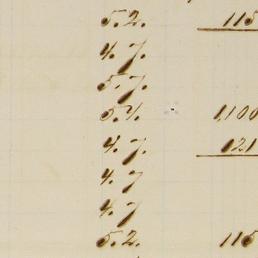 5.2. 115
4.7.
5.7.
5.4. 1,100
4.7. 121
4.7
4.7
5.2. 115